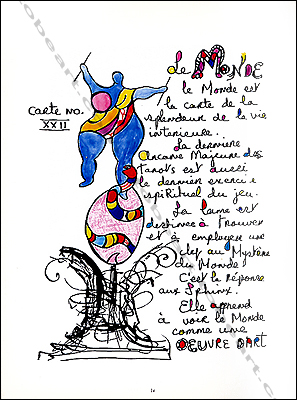 Le MONDE
CARTE NO.
XXII
le Monde est
la carte de la
splendeur de la vie
interieure.
La derniere
Arcane Majeure des
tarots est aussi
le dernier exercice
spirituel du jeu.
La lame est
destinée à trouver
et à employer une
clef au Mystère
du Monde
C'est la réponse
aux Sphinx.
Elle apprend
à voir le Monde
comme une
OEUVRE D'ART